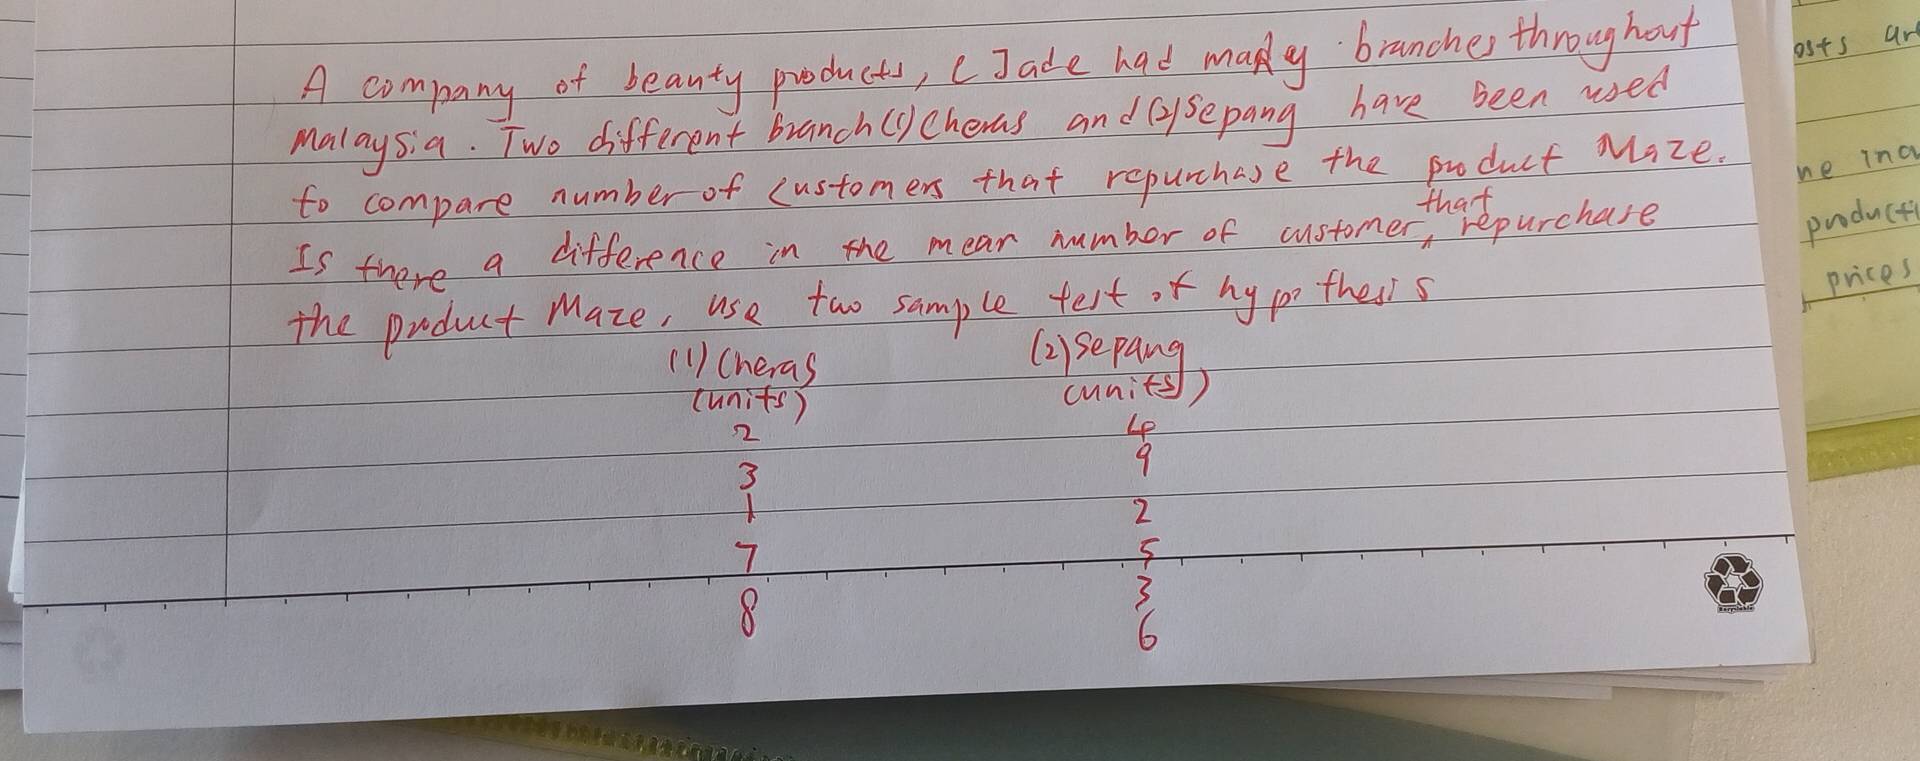 A company of beauty products, CJade had many branches throughout
Malaysia. Two different branch (1) Cheras and (2) Sepang have been used
to compare number of customers that repurchase the product Maze.
Is there a difference in the mean number of customer that repurchase
the product Maze, use two sample test of hypothesis
(1) Cheras (2) Sepang
(units) (units)
2 4
3 9
1 2
7 5
8 3
6
Recyclable
osts are
ne
producti
prices